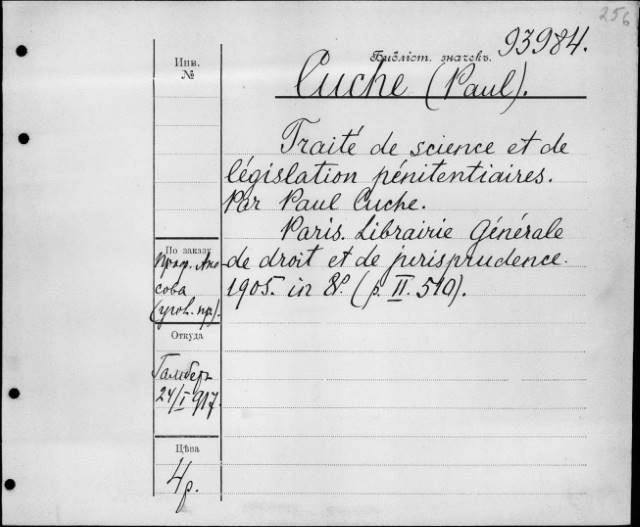 256
93984.
Библіот. значекъ.
Инв.
№
Cuche (Paul).
Traité de science et de
législation pénitentiaires.
Par Paul Cuche.
Paris. Librairie Générale
de droit et de jurisprudence.
1905. in 8º. (p. II. 510).
По заказу
Проф. Ано-
сова
(угол. пр).
Откуда
Гамберъ
24/I 917.
Цѣна
4 р.